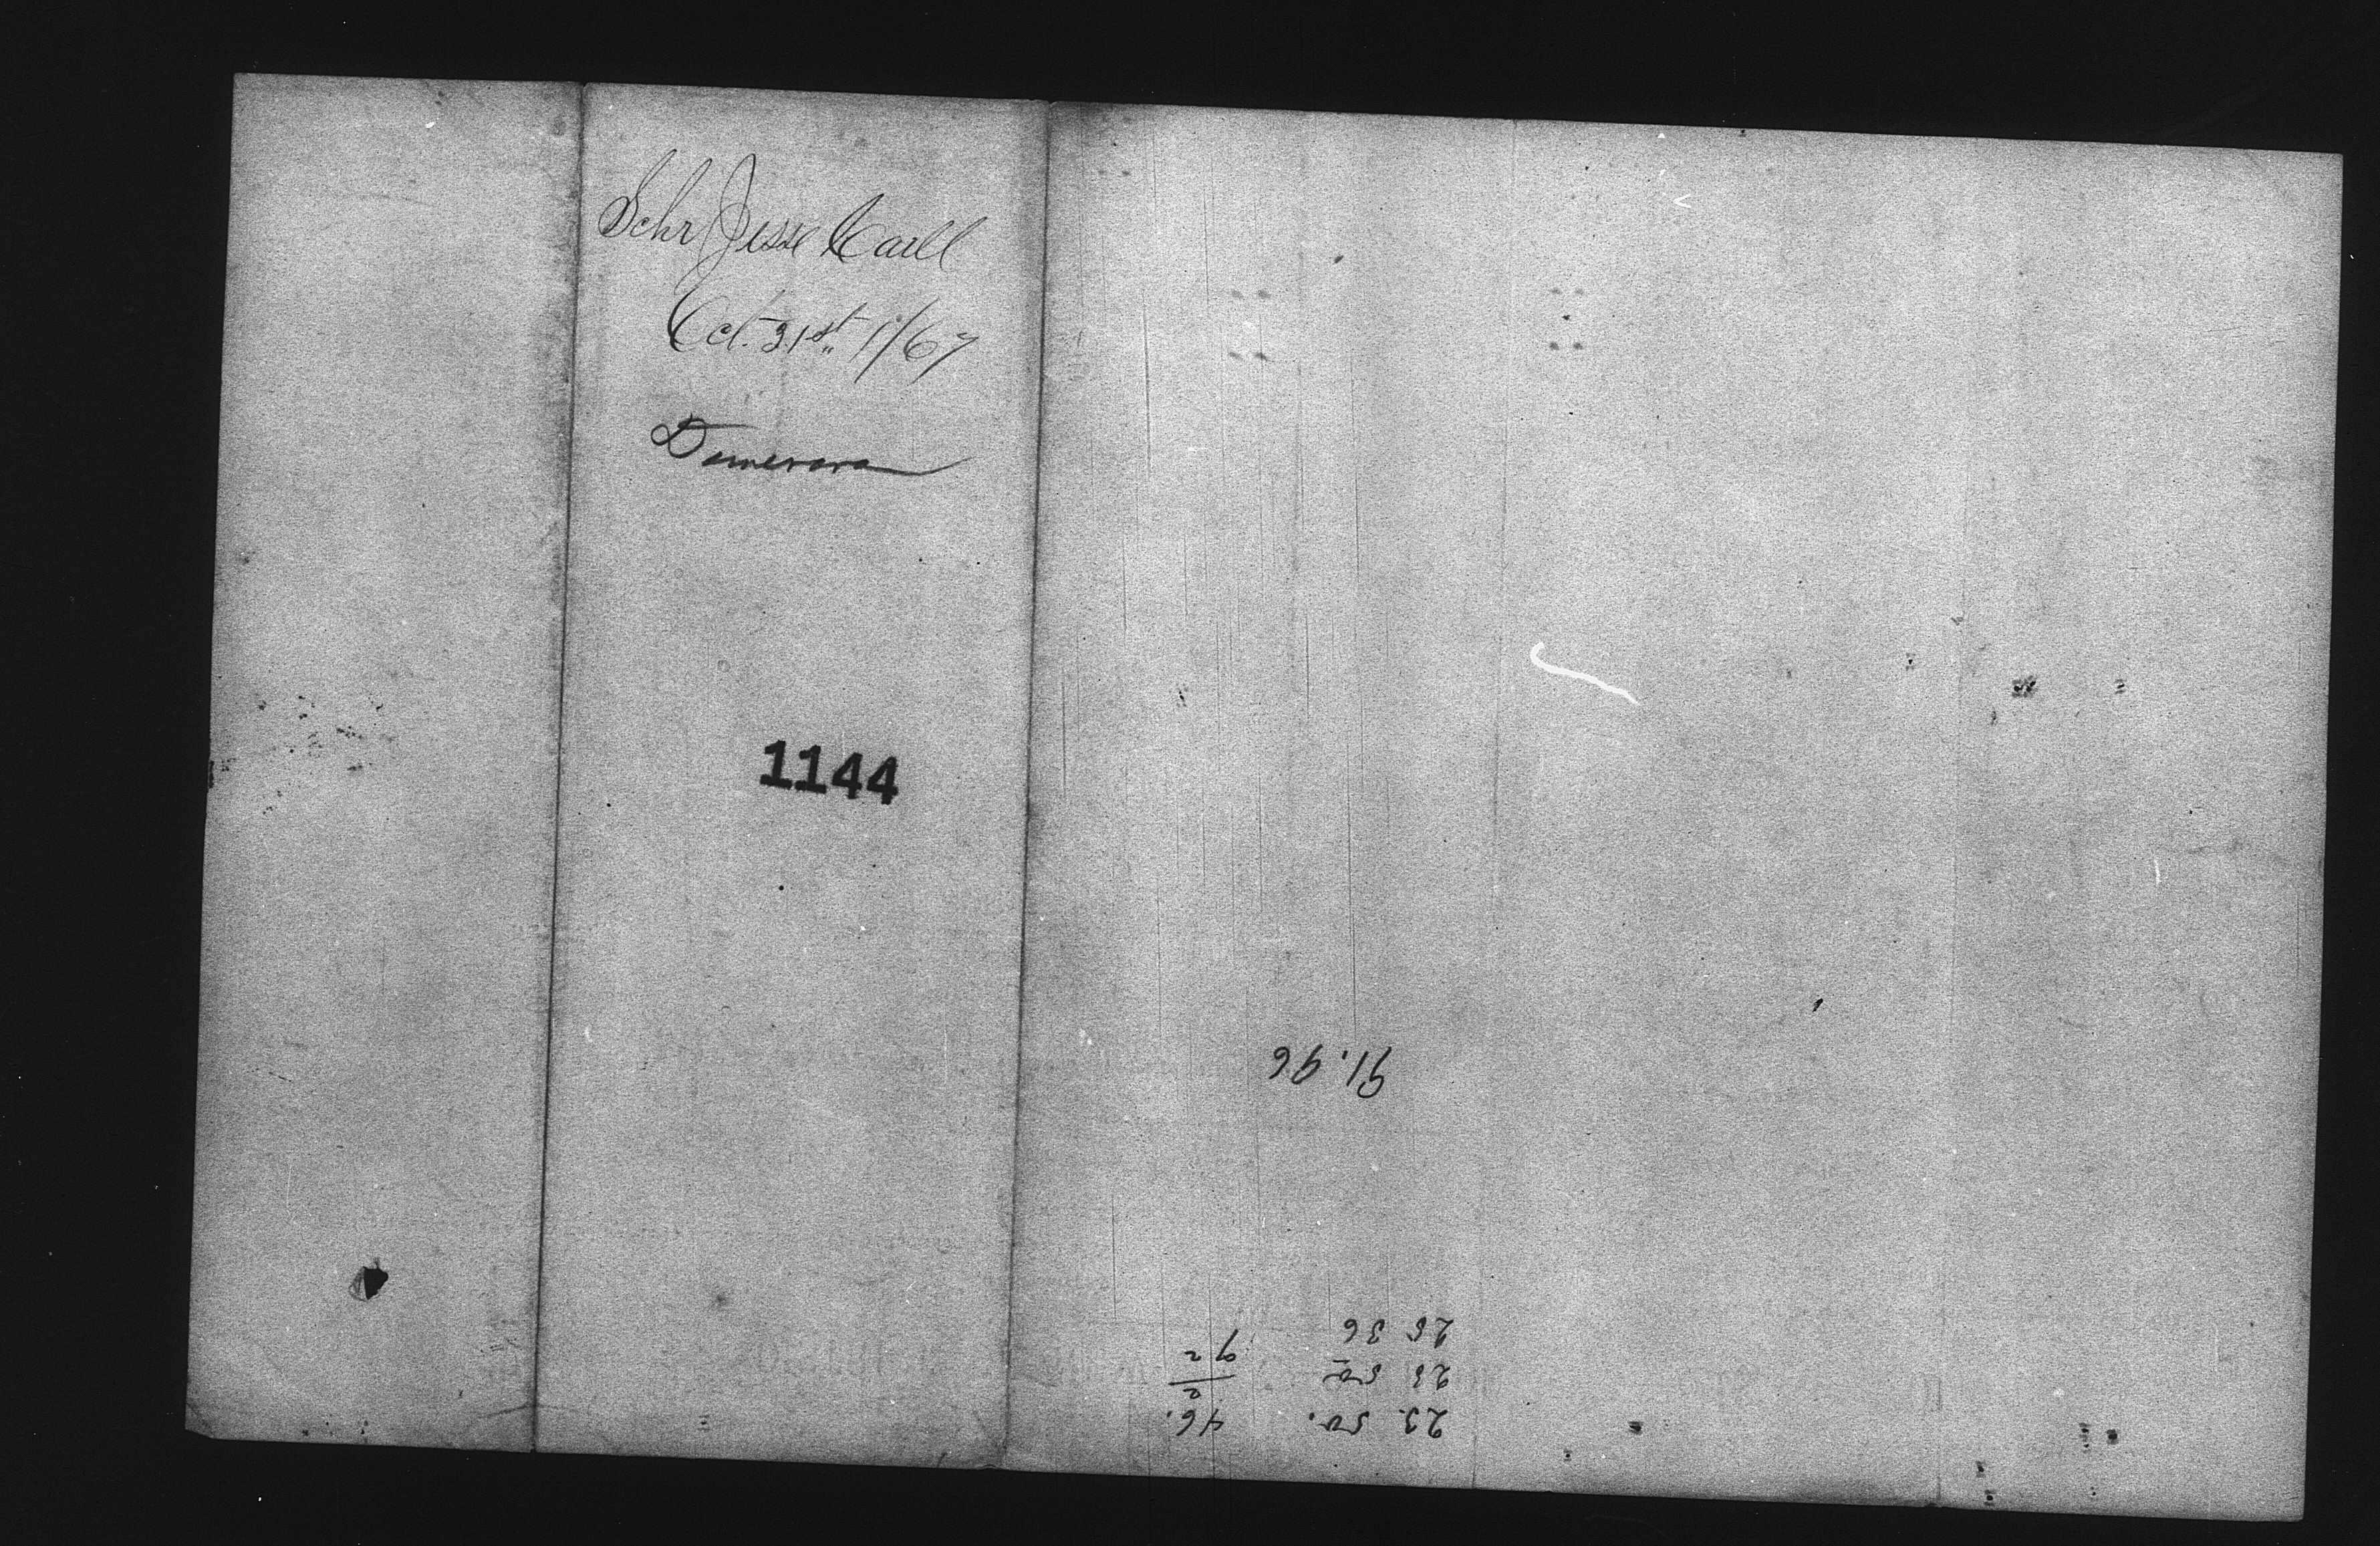 Schr Jesse Carll
Oct. 31st 1867
Demerara
1144
91.96
23. 50.
23 50
25 36
46.
2
92